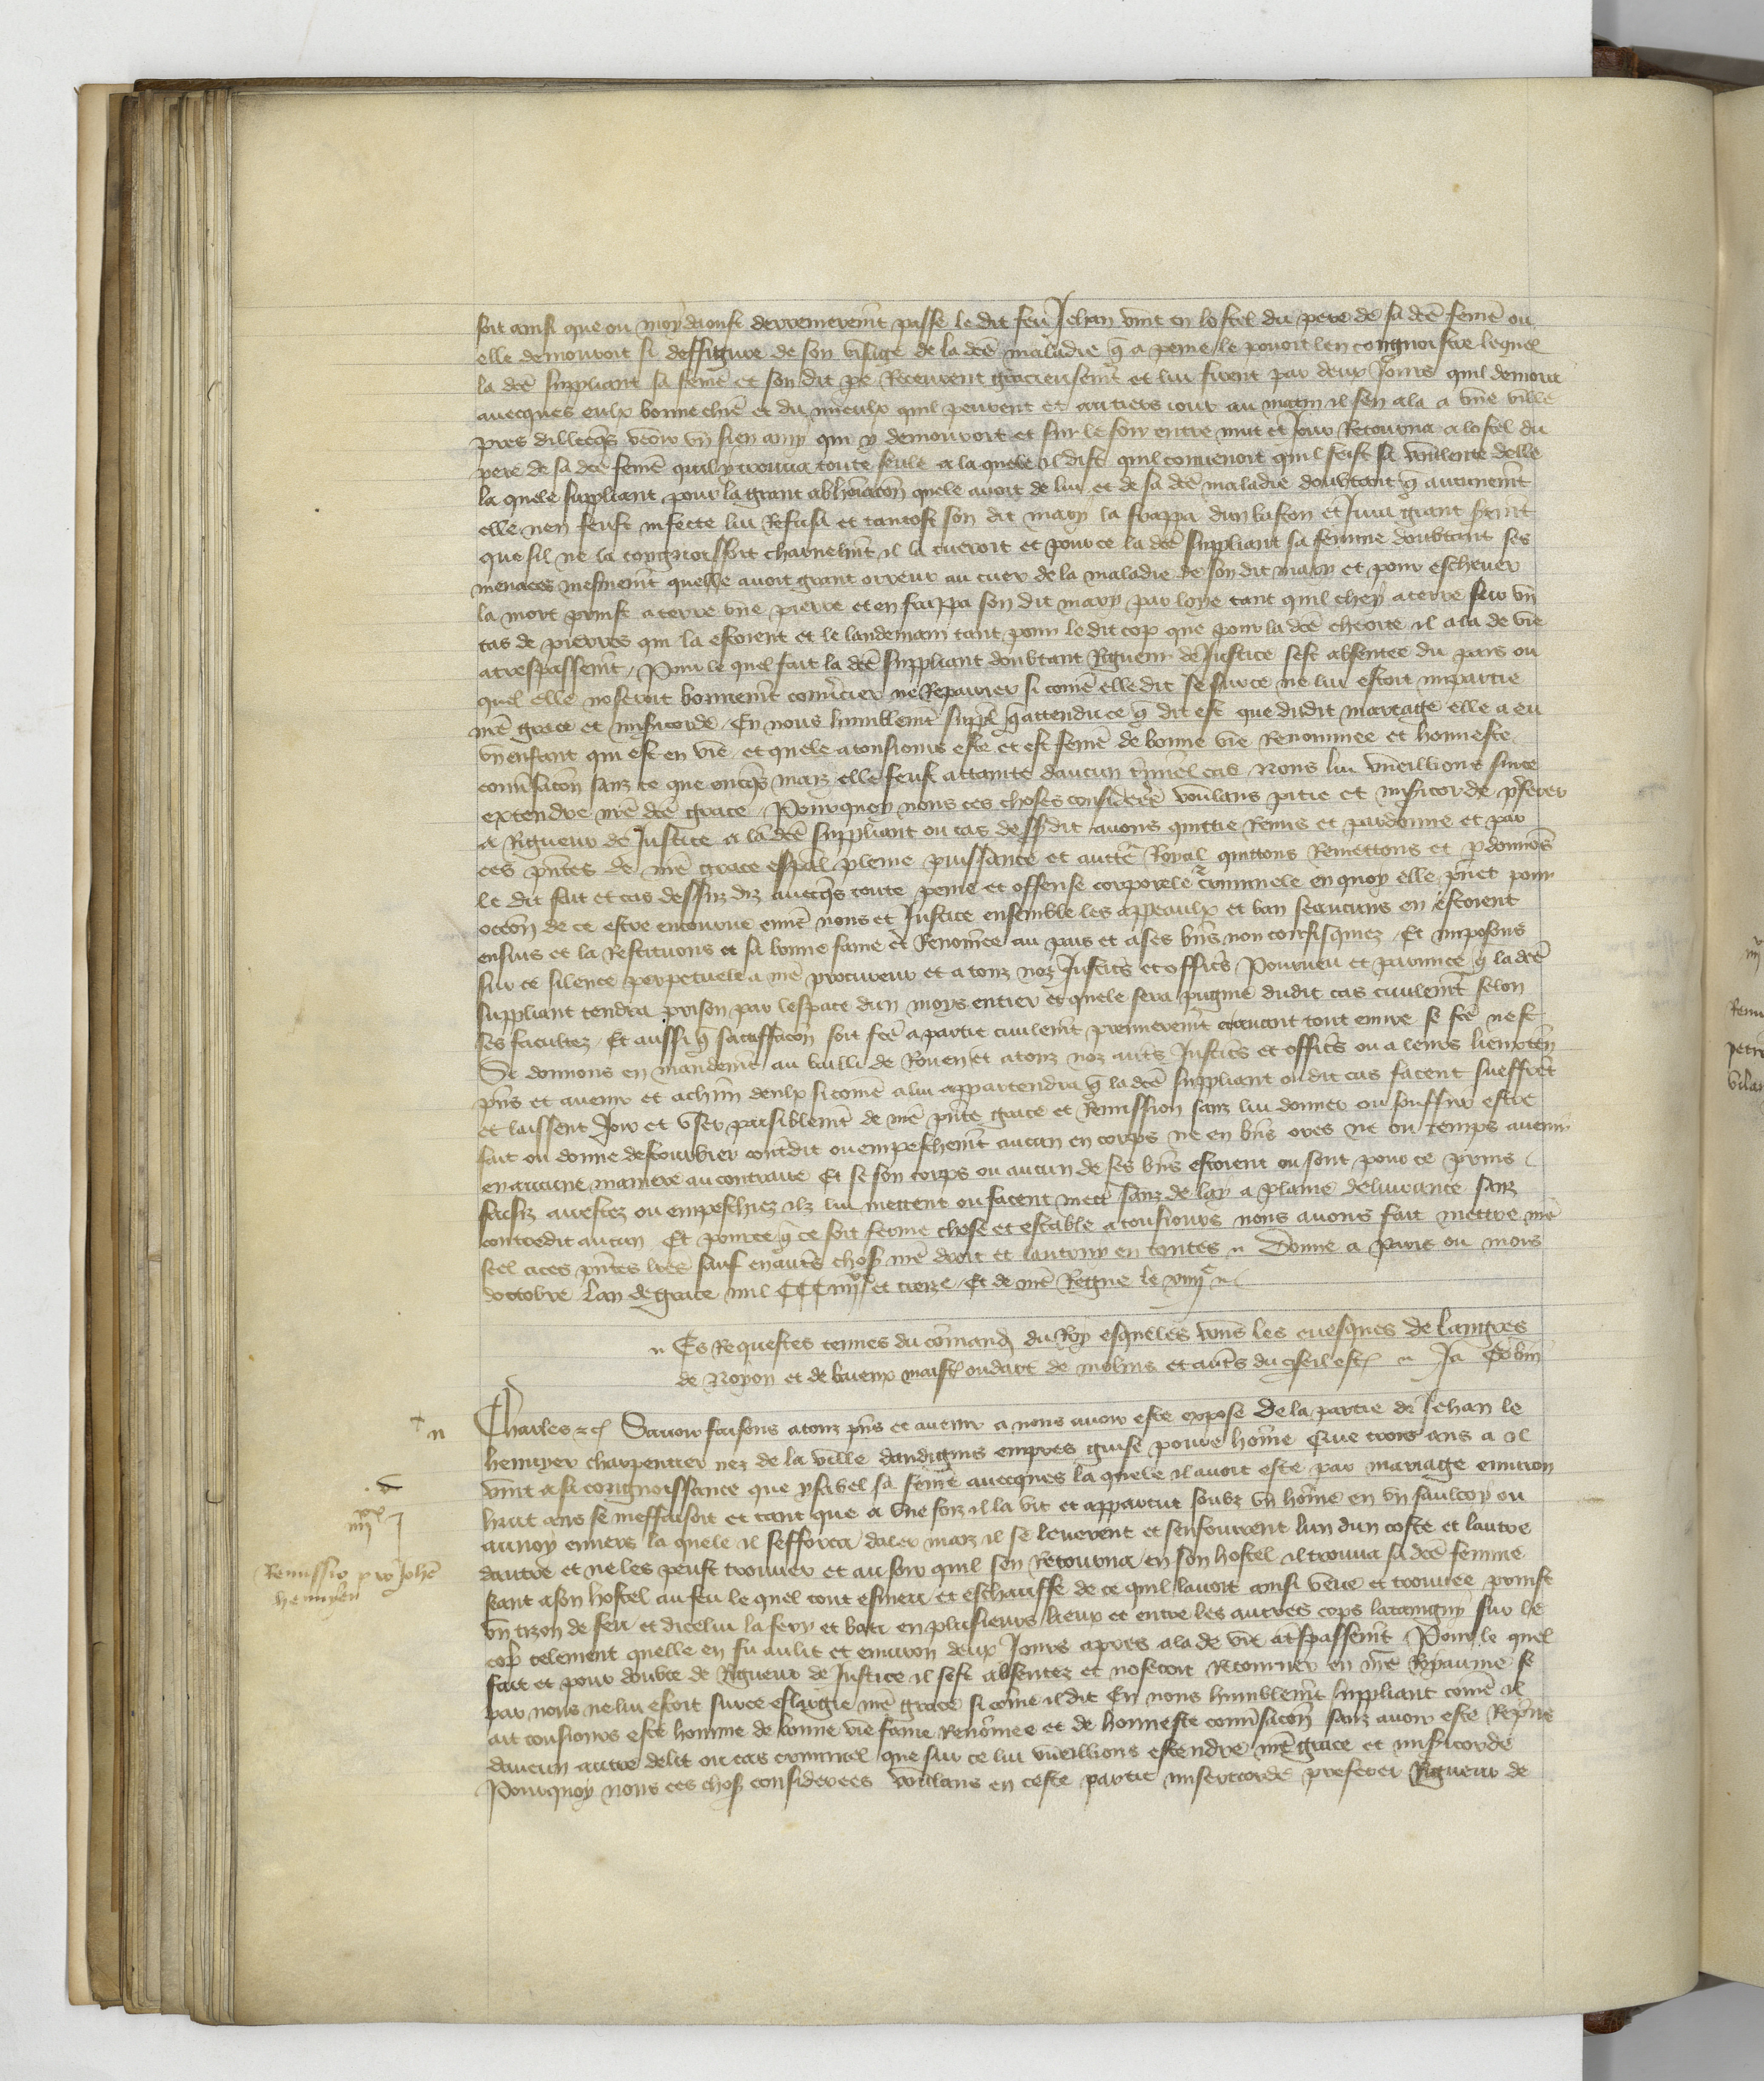 soit ainsi que ou moys daoust derrenierem̄t passe le dit feu Jehan vint en lostel du pere de sa dc̄e fem̄e ou
elle demouroit si deffigure de son visage de la dc̄e maladie q̄ a peine le povoit len congnoistre lequel
la dc̄e suppliant sa fem̄e et son dit pe receurent gracieusem̄t et lui firent par deux Jours quil demoura
avecques eulx bonne chiē et du mieulx quil peurent et au tiers jour au matin il sen ala a une ville
pres dillecqs veoir un sien amy qui y demouroit et sur le soir entre nuit et Jour Retourna a lostel du
pere de sa dc̄e fem̄e quil y trouva toute seule a la quele il dist quil convenoit quil feist sa voulente delle
la quele suppliant pour la grant abhōiacōn quele avoit de lui et de sa dc̄e maladie doubtant q̄ aucunem̄t
elle nen feust infecte lui Refusa et tantost son dit mary la frappa dun baston et Jura grant serem̄t
que sil ne la congnoissoit charnelm̄t il la tueroit et pource la dc̄e suppliant sa femme doubtant ses
menaces mesmem̄t quelle avoit grant orreur au cuer de la maladie de son dit mary et pour eschever
la mort prinst a terre une pierre et en frappa son dit mary par loye tant quil chey a terre sur un
tas de pierres qui la estoient et le landemain tant pour le dit cop que pour la dc̄e cheoite il ala de vie
a trespassem̄t / Pour le quel fait la dc̄e suppliant doubtant Rigueur de Justice sest absentee du pais ou
quel elle noseroit bonnem̄t convērser ne Reparier si com̄e elle dit se sur ce ne lui estoit impartie
nr̄e grace et mis̄icorde / En nous humblem̄t suppl̄ q̄ attendu ce q̄ dit est que dudit mariage elle a eu
un enfant qui est en vie et quele a tousiours este et est fem̄e de bonne vie Renommee et honneste
conv̄sacōn sanz ce que oncqs mais elle feust attainte daucun v̄ilain cas Nous lui vueillions sur ce
extendre nr̄e dc̄e grace / Pourquoy nous ces choses considerēs voulans pitie et mis̄icorde p̄ferer
a Rigueur de Justice a la dc̄e suppliant ou cas dessusdit avons quittie Remis et pardonne et par
ces p̄ntes de nr̄e grace esp̄al pleine puissance et auctē Royal quittons Remettons et p̄donnōs
le dit fait et cas dessusdiz avecqs toute peine et offense corporele ⁊ criminele en quoy elle puet pour
occōn de ce estre encourue env̄s nous et Justice ensemble les appeaulx et ban se aucuns en estoient
ensuis et la Restituons a sa bonne fame et Renom̄ee au pais et a ses bn̄s non confisquiez / Et imposons
sur ce silence perpetuele a nr̄e procureur et a touz noz Justic̄s et offic̄s / Pourveu et parmi ce q̄ la dc̄e
suppliant tendra prison par lespace dun moys entier et quele sera pugnie dudit cas civilem̄t selon
ses facultez / Et aussi q̄ satisfacōn soit fc̄e a partie civilem̄t premierem̄t et avant tout euvre se fc̄e nest
Si donnons en mandem̄t au bailli de Rouen et a touz noz autr̄s Justic̄s et offic̄s ou a leurs lieuxten̄
p̄ns et avenir et a ch̄un deulx si com̄e a lui appartendra q̄ la dc̄e suppliant oudit cas facent sueffrēt
et laissent Joir et user paisiblem̄t de nr̄e p̄nte grace et Remission sanz lui donner ou souffrir estre
fait ou donne destourbier cont̄dit ou empeschem̄t aucun en corps ne en bn̄s ores ne ou temps avenir
en aucune maniere au contraire Et se son corps ou aucun de ses bn̄s estoient ou sont pour ce prins
saisiz arrestez ou empeschiez ilz lui mettent ou facent mett̄ sanz delay a plaine delivrance sanz
contredit aucun Et pour ce q̄ ce soit ferme chose et estable a tousiours nous avons fait mettre nr̄e
seel a ces p̄ntes lr̄es sauf en autr̄s chos̄ nr̄e droit et lautruy en toutes ~ Donne a Paris ou mois
doctobre Lan de grace mil CCC iiijxx et treize / Et de nr̄e Regne le xiiijc ~
~ Es Requestes tenues du com̄and̄ du Roy esqueles vous les evesques de Langres
de Noyon et de baieux maistr̄ oudart de molins et autr̄s du ꝯseil est ~ Ja Gobin
Charles ⁊c̄ Savoir faisons a touz p̄ns et avenir a nous avoir este expose De la partie de Jehan le
henuyer charpentier nez de la ville dandigms empres guise povre hom̄e Que trois ans a il
vint a sa congnoissance que ysabel sa fem̄e avecques la quele il avoit este par mariage environ
huit ans se meffaisoit et tant que a une foiz il la vit et apparcut soubz un hom̄e en un saulçoy ou
aunoy envers la quele il sefforca daler mais il se leverent et senfouirent lun dun coste et lautre
dautre et ne les peust trouver et au soir quil sen Retourna en son hostel il trouva sa dc̄e femme
seant a son hostel au feu le quel tout esmeu et eschauffe de ce quil lavoit ainsi veue et trouvee prinst
un tizon de feu et dicelui la fery et bati en plusieurs lieux et entre les autres cops lataigny sur le
cop̄ telement quelle en fu au lit et environ deux Jours apres ala de vie a tr̄spassem̄t Pour le quel
fait et pour doubte de Rigueur de Justice il sest absentez et noseroit Retourner en nr̄e Royaume se
par nous ne lui estoit sur ce eslargie nr̄e grace si com̄e il dit En nous humblem̄t suppliant com̄e il
ait tousiours este homme de bonne vie fame Renom̄ee et de honneste conv̄sacōn sanz avoir este Repris
daucun autre delit ou cas criminel que sur ce lui vueillions estendre nr̄e grace et mis̄icorde
Pourquoy nous ces chos̄ considerees voulans en ceste partie misericorde preferer Rigueur de
Remissio pro Joh̄e
henuyer